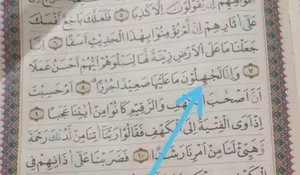 اَفْوَاهِهِمْ اِنْ يَّقُوْلُوْنَ اِلَّا كَذِبًا ٥ فَلَعَلَّكَ بَاخِعٌ نَّفْسَكَ
عَلٰٓى اٰثَارِهِمْ اِنْ لَّمْ يُؤْمِنُوْا بِهٰذَا الْحَدِيْثِ اَسَفًا ٦ اِنَّا
جَعَلْنَا مَا عَلَى الْاَرْضِ زِيْنَةً لَّهَا لِنَبْلُوَهُمْ اَيُّهُمْ اَحْسَنُ عَمَلًا
٧ وَاِنَّا لَجٰهِلُوْنَ مَا عَلَيْهَا صَعِيْدًا جُرُزًا ٨ اَمْ حَسِبْتَ
اَنَّ اَصْحٰبَ الْكَهْفِ وَالرَّقِيْمِ كَانُوْا مِنْ اٰيٰتِنَا عَجَبًا ٩
اِذْ اَوَى الْفِتْيَةُ اِلَى الْكَهْفِ فَقَالُوْا رَبَّنَآ اٰتِنَا مِنْ لَّدُنْكَ رَحْمَةً
وَّهَيِّئْ لَنَا مِنْ اَمْرِنَا رَشَدًا ١٠ فَضَرَبْنَا عَلٰٓى اٰذَانِهِمْ فِى